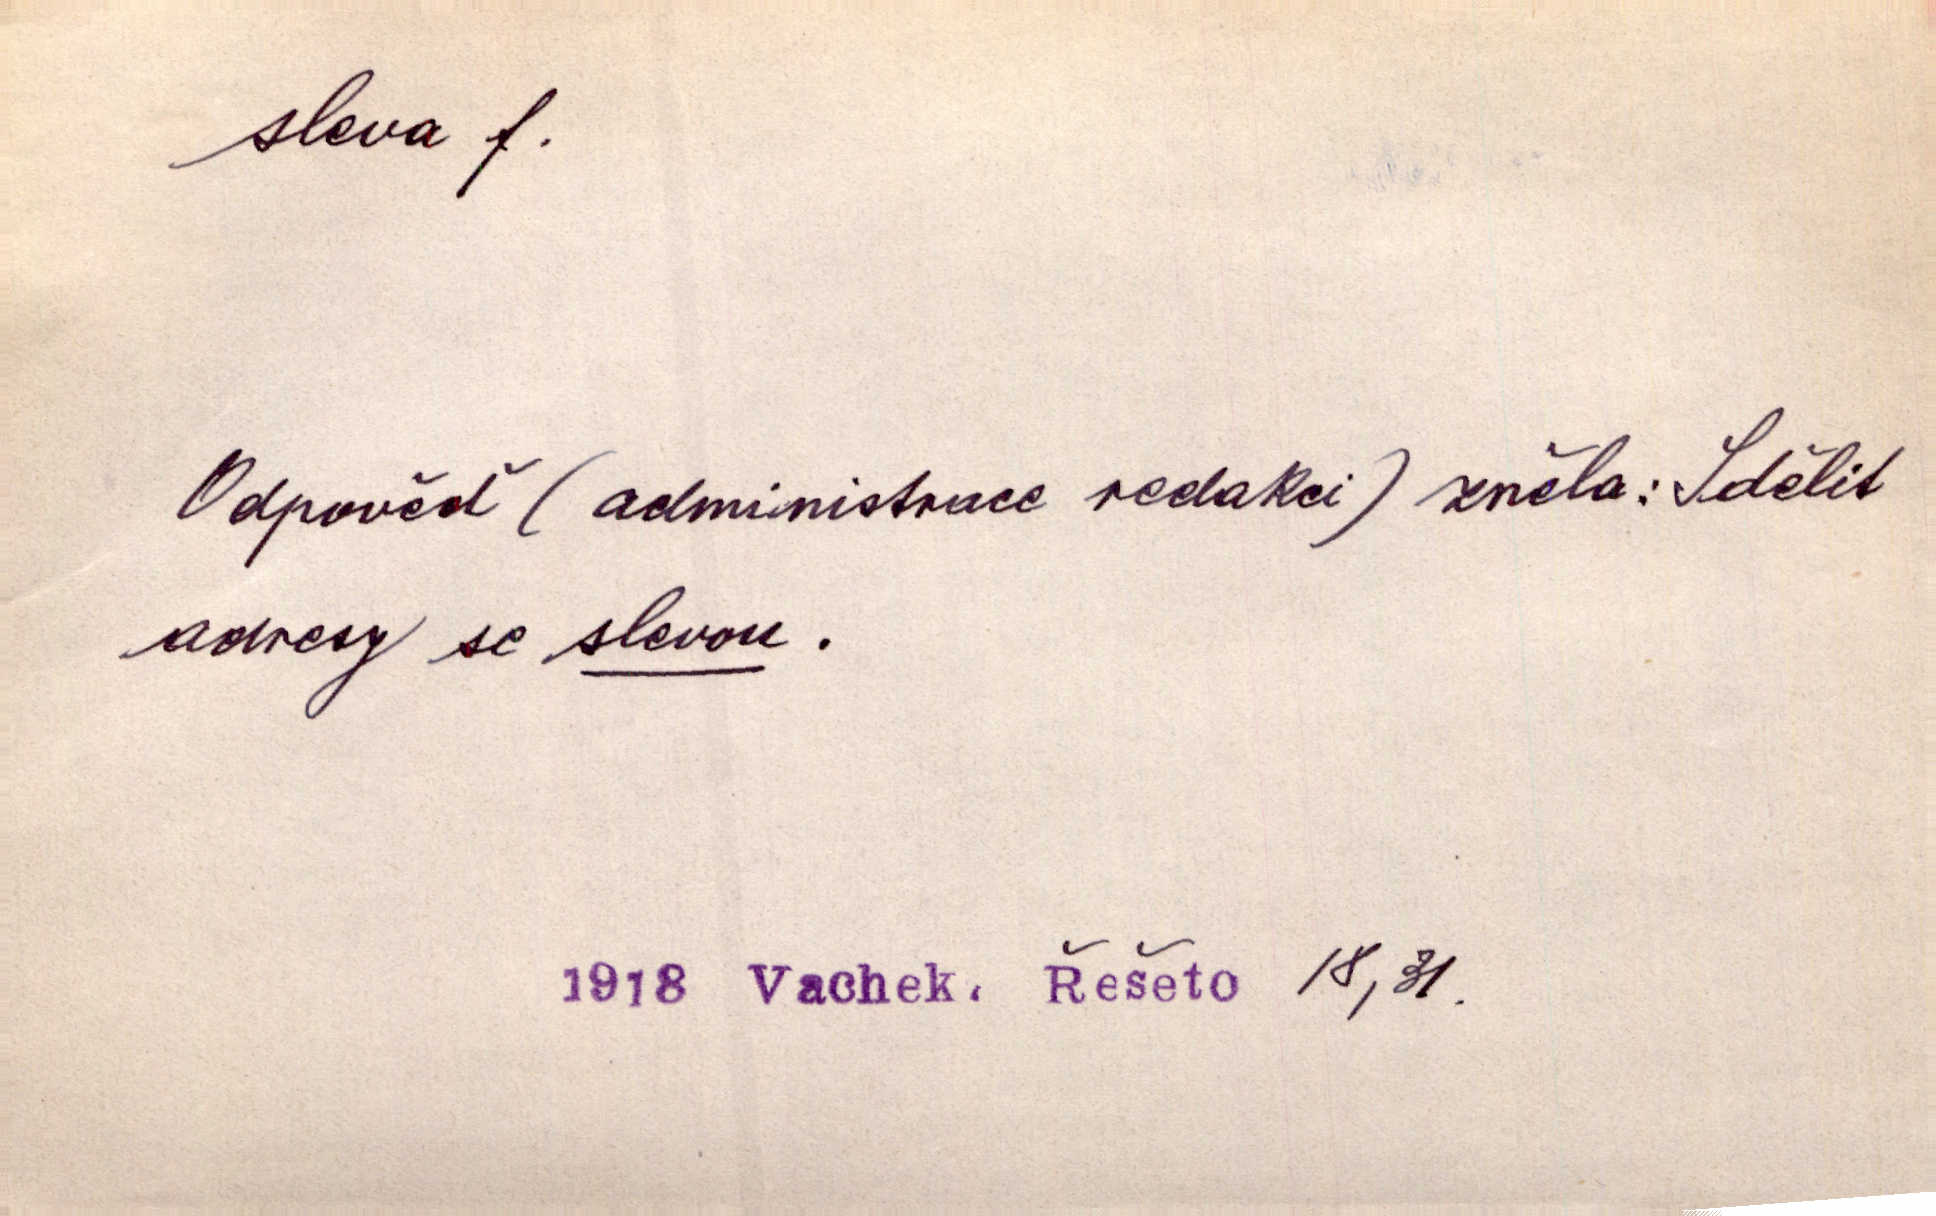 sleva f.
Odpověď (administrace redakci) zněla: Sdělit
adresy se slevou.
1918 Vachek. Řešeto 18, 31.